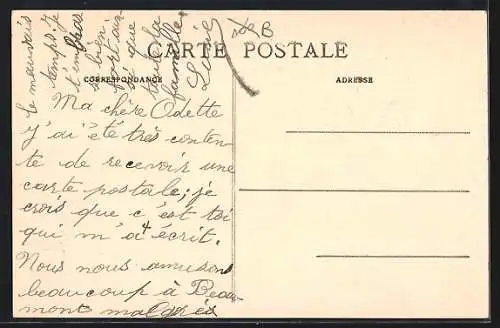 CARTE POSTALE
CORRESPONDANCE
ADRESSE
Ma chère Odette
J'ai été très conten-
te de recevoir une
carte postale; je
crois que c'est toi
qui m'a écrit.
Nous nous amusons
beaucoup à Beau-
mont malgrés
le mauvais
temps. Je
t'embras
se bien
fort ain-
si que
toute la
famille
Louise